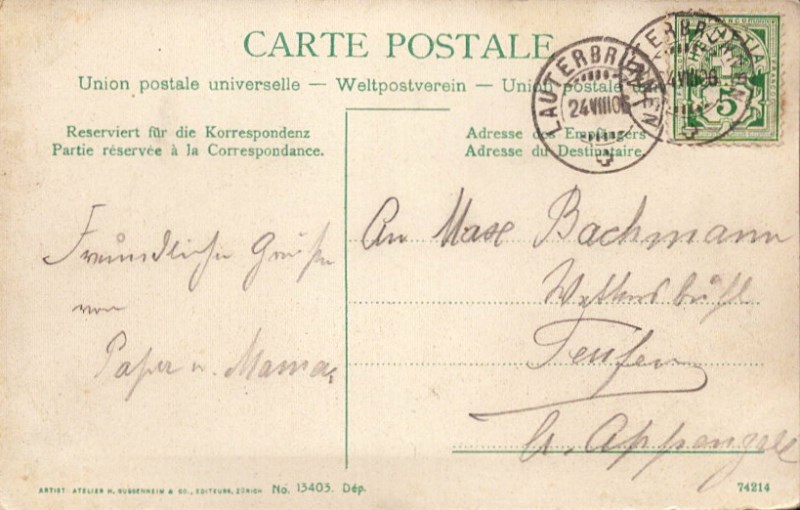 CARTE POSTALE
Union postale universelle — Weltpostverein — Union postale
Reserviert für die Korrespondenz
Partie réservée à la Correspondance.
Adresse des Empfängers
Adresse du Destinataire.
LAUTERBRUNNEN
24.VIII.06
HELVETIA
5
Freundliche Grüsse
von
Papa u. Mama.
An Max Bachmann
Teufen
Ct. Appenzell
ARTIST. ATELIER H. GUGGENHEIM & CO., EDITEURS, ZÜRICH No. 13403. Dép.
74214